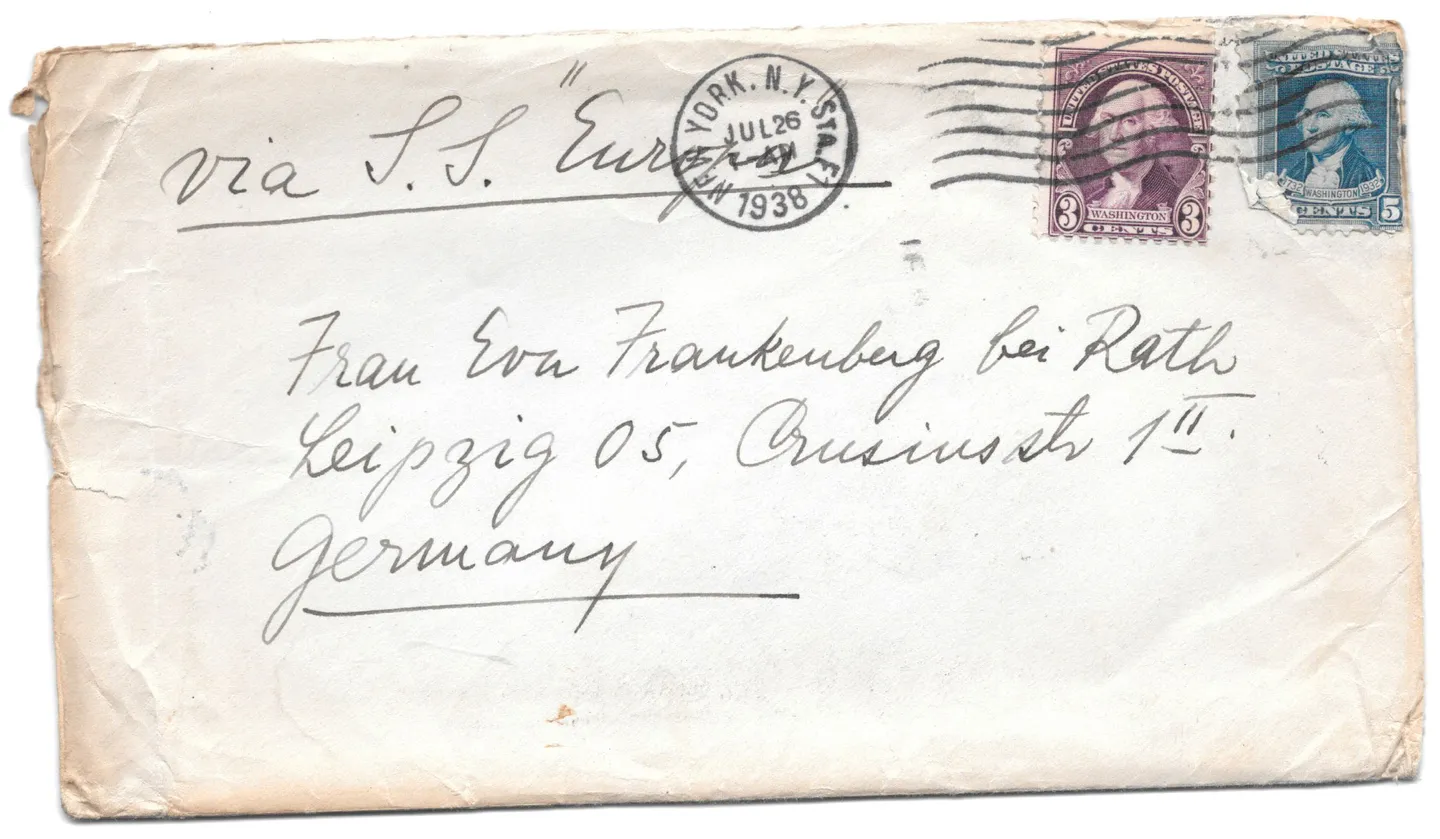 via S.S. "Europa"
NEW YORK, N.Y. STA. F1
JUL 26
AM
1938
UNITED STATES POSTAGE
3 WASHINGTON 3
CENTS
UNITED STATES
POSTAGE
1732 WASHINGTON 1932
CENTS 5
Frau Eva Frankenberg bei Rath
Leipzig O5, Crusiusstr 1 II.
Germany